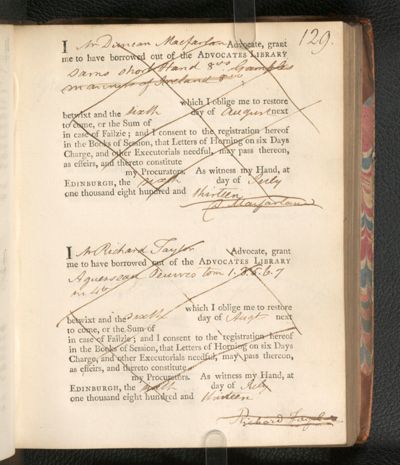 129.
I Mr Duncan Macfarlan Advocate, grant
me to have borrowed out of the ADVOCATES LIBRARY
Sams short Hand 8vo
of Ireland 8vo
which I oblige me to restore
betwixt and the sixth day of August next
to come, or the Sum of
in case of Failzie; and I consent to the registration hereof
in the Books of Session, that Letters of Horning on six Days
Charge, and other Executorials needful, may pass thereon,
as effeirs, and thereto constitute
my Procurators. As witness my Hand, at
EDINBURGH, the sixth day of July
one thousand eight hundred and thirteen
D. Macfarlan
I Mr Richard Taylor Advocate, grant
me to have borrowed out of the ADVOCATES LIBRARY
tom 1. 3. 5. 6. 7
in 4to
which I oblige me to restore
betwixt and the sixth day of Augt next
to come, or the Sum of
in case of Failzie; and I consent to the registration hereof
in the Books of Session, that Letters of Horning on six Days
Charge, and other Executorials needful, may pass thereon,
as effeirs, and thereto constitute
my Procurators. As witness my Hand, at
EDINBURGH, the sixth day of July
one thousand eight hundred and thirteen
Richard Taylor